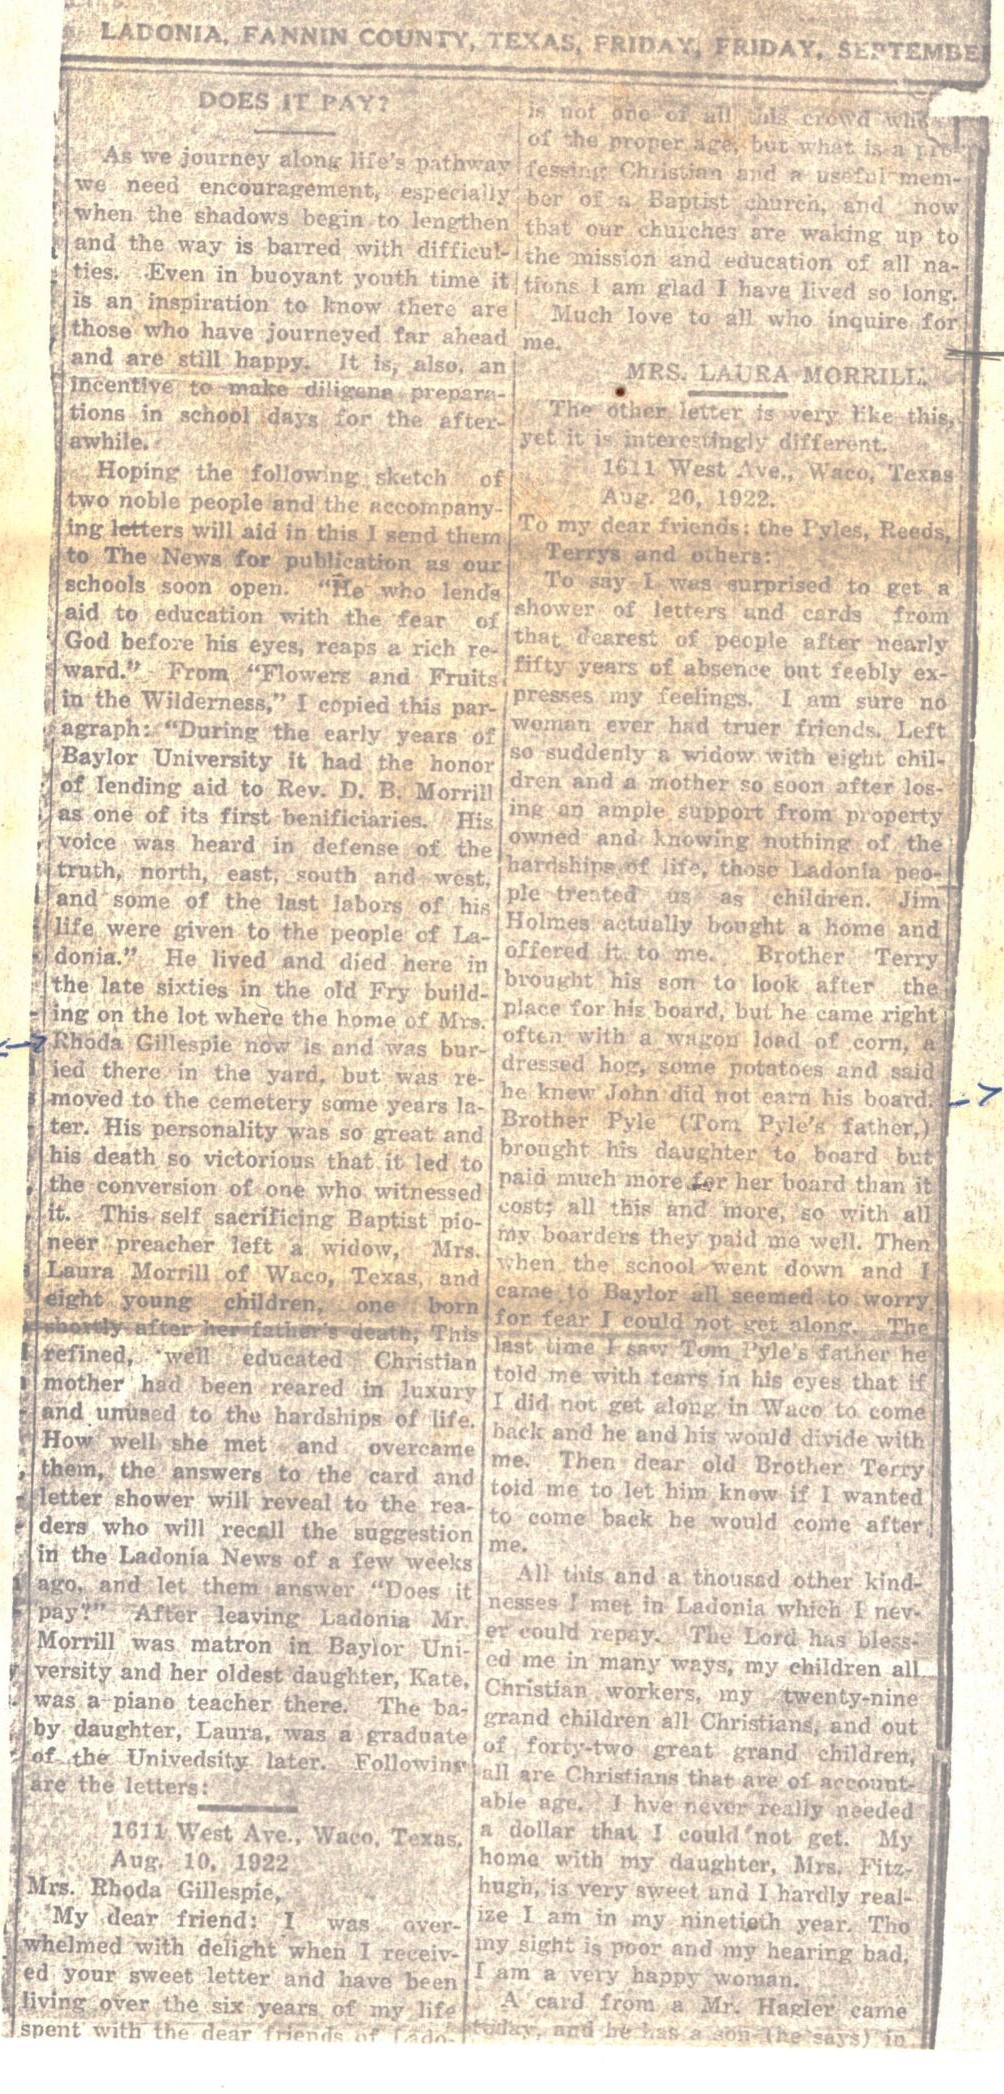 LADONIA, FANNIN COUNTY, TEXAS, FRIDAY, FRIDAY, SEPTEMBE
DOES IT PAY?
As we journey along life's pathway
we need encouragement, especially
when the shadows begin to lengthen
and the way is barred with difficul-
ties. Even in buoyant youth time it
is an inspiration to know there are
those who have journeyed far ahead
and are still happy. It is, also, an
incentive to make diligene prepara-
tions in school days for the after-
awhile.
Hoping the following sketch of
two noble people and the accompany-
ing letters will aid in this I send them
to The News for publication as our
schools soon open. "He who lends
aid to education with the fear of
God before his eyes, reaps a rich re-
ward." From "Flowers and Fruits
in the Wilderness," I copied this par-
agraph: "During the early years of
Baylor University it had the honor
of lending aid to Rev. D. B. Morrill
as one of its first benificiaries. His
voice was heard in defense of the
truth, north, east, south and west,
and some of the last labors of his
life were given to the people of La-
donia." He lived and died here in
the late sixties in the old Fry build-
ing on the lot where the home of Mrs.
Rhoda Gillespie now is and was bur-
ied there in the yard, but was re-
moved to the cemetery some years la-
ter. His personality was so great and
his death so victorious that it led to
the conversion of one who witnessed
it. This self sacrificing Baptist pio-
neer preacher left a widow, Mrs.
Laura Morrill of Waco, Texas, and
eight young children, one born
shortly after her father's death, This
refined, well educated Christian
mother had been reared in luxury
and unused to the hardships of life.
How well she met and overcame
them, the answers to the card and
letter shower will reveal to the rea-
ders who will recall the suggestion
in the Ladonia News of a few weeks
ago, and let them answer "Does it
pay?" After leaving Ladonia Mr.
Morrill was matron in Baylor Uni-
versity and her oldest daughter, Kate,
was a piano teacher there. The ba-
by daughter, Laura, was a graduate
of the Univedsity later. Following
are the letters:
1611 West Ave., Waco, Texas,
Aug. 10, 1922
Mrs. Rhoda Gillespie,
My dear friend: I was over-
whelmed with delight when I receiv-
ed your sweet letter and have been
living over the six years of my life
spent with the dear friends of Lado-
is not one of all this crowd who
of the proper age, but what is a pro-
fessing Christian and a useful mem-
ber of a Baptist church, and now
that our churches are waking up to
the mission and education of all na-
tions I am glad I have lived so long.
Much love to all who inquire for
me.
MRS. LAURA MORRILL.
The other letter is very like this,
yet it is interestingly different.
1611 West Ave., Waco, Texas
Aug. 20, 1922.
To my dear friends: the Pyles, Reeds,
Terrys and others:
To say I was surprised to get a
shower of letters and cards from
that dearest of people after nearly
fifty years of absence but feebly ex-
presses my feelings. I am sure no
woman ever had truer friends. Left
so suddenly a widow with eight chil-
dren and a mother so soon after los-
ing an ample support from property
owned and knowing nothing of the
hardships of life, those Ladonia peo-
ple treated us as children. Jim
Holmes actually bought a home and
offered it to me. Brother Terry
brought his son to look after the
place for his board, but he came right
often with a wagon load of corn, a
dressed hog, some potatoes and said
he knew John did not earn his board.
Brother Pyle (Tom Pyle's father,)
brought his daughter to board but
paid much more for her board than it
cost; all this and more, so with all
my boarders they paid me well. Then
when the school went down and I
came to Baylor all seemed to worry
for fear I could not get along. The
last time I saw Tom Pyle's father he
told me with tears in his eyes that if
I did not get along in Waco to come
back and he and his would divide with
me. Then dear old Brother Terry
told me to let him know if I wanted
to come back he would come after
me.
All this and a thousad other kind-
nesses I met in Ladonia which I nev-
er could repay. The Lord has bless-
ed me in many ways, my children all
Christian workers, my twenty-nine
grand children all Christians, and out
of forty-two great grand children,
all are Christians that are of account-
able age. I hve never really needed
a dollar that I could not get. My
home with my daughter, Mrs. Fitz-
hugh, is very sweet and I hardly real-
ize I am in my ninetieth year. Tho
my sight is poor and my hearing bad,
I am a very happy woman.
A card from a Mr. Hagler came
today, and he has a son (he says) in